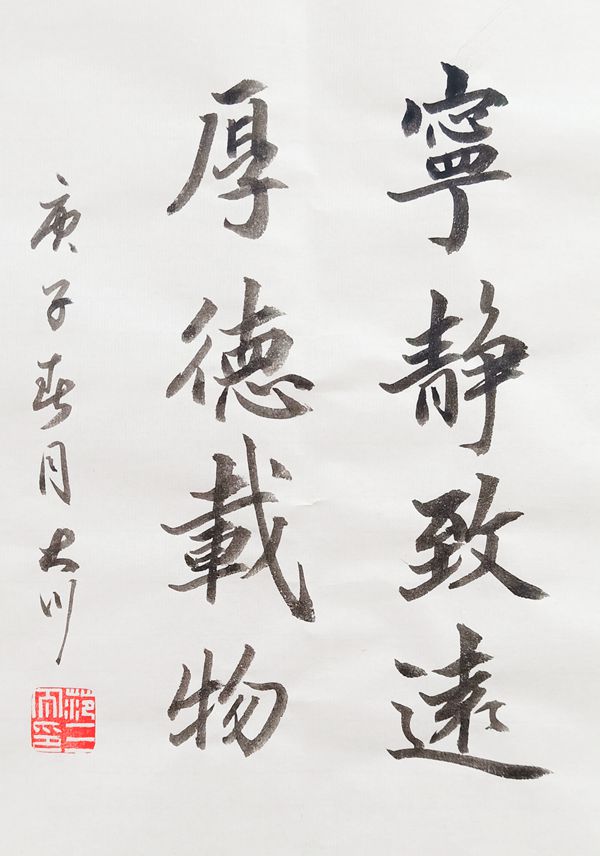 寧静致遠
厚德載物
庚子春月大川